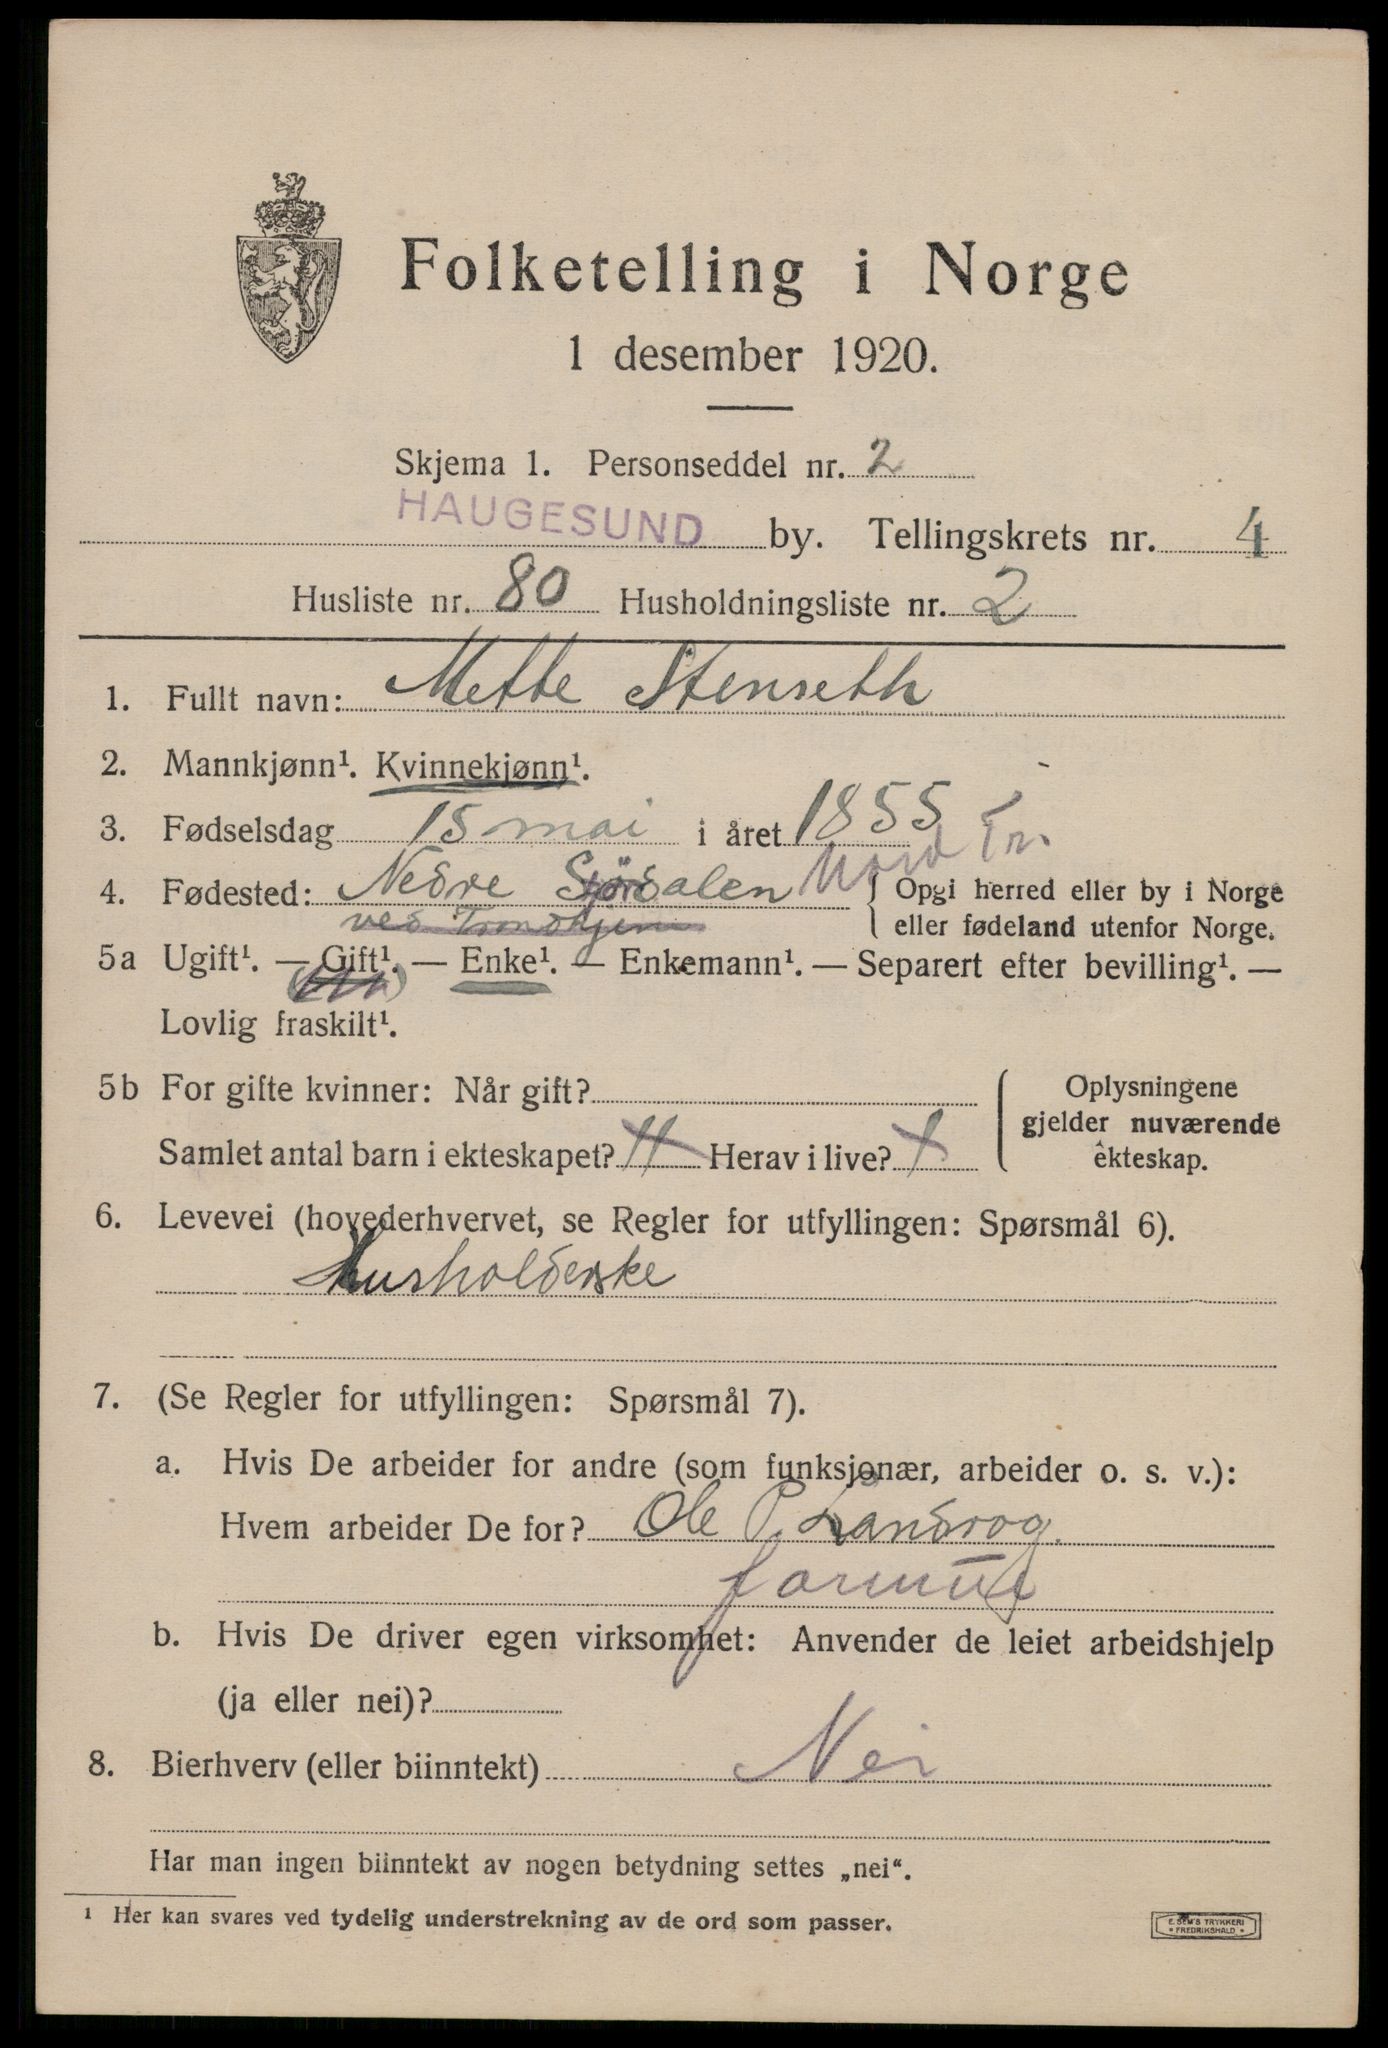 Folketelling i Norge
1 desember 1920.
Skjema 1. Personseddel nr. 2
HAUGESUND by. Tellingskrets nr. 4
Husliste nr. 80 Husholdningsliste nr. 2
1. Fullt navn: Mette Stenseth
2. Mannkjønn¹. Kvinnekjønn¹.
3. Fødselsdag 15 mai i året 1855
4. Fødested: Nedre Stjørdalen Nord Tr. Opgi herred eller by i Norge
ved Trondhjem eller fødeland utenfor Norge.
5a Ugift¹. — Gift¹. — Enke¹. — Enkemann¹. — Separert efter bevilling¹. —
Lovlig fraskilt¹.
5b For gifte kvinner: Når gift? Oplysningene
gjelder nuværende
Samlet antal barn i ekteskapet? 11 Herav i live? 1 ekteskap.
6. Levevei (hovederhvervet, se Regler for utfyllingen: Spørsmål 6).
Husholderske
7. (Se Regler for utfyllingen: Spørsmål 7).
a. Hvis De arbeider for andre (som funksjonær, arbeider o. s. v.):
Hvem arbeider De for? Ole P. Landrog.
b. Hvis De driver egen virksomhet: Anvender de leiet arbeidshjelp
(ja eller nei)?
8. Bierhverv (eller biinntekt) Nei
Har man ingen biinntekt av nogen betydning settes „nei“.
¹ Her kan svares ved tydelig understrekning av de ord som passer.
E. SEM'S TRYKKERI
* FREDRIKSHALD *